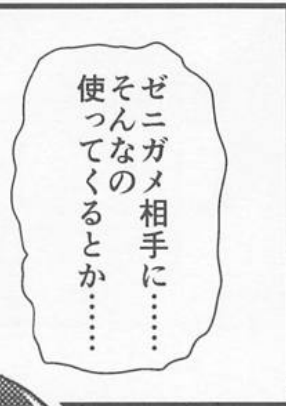 ゼニガメ相手に………
そんなの
使ってくるとか………